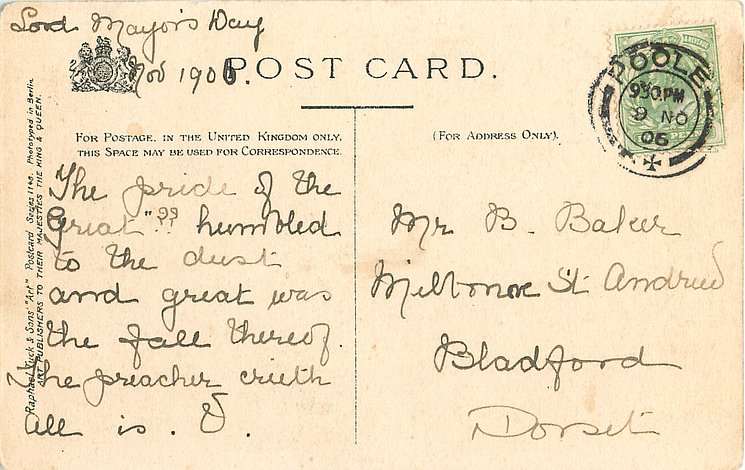 Lord Mayor's Day
Nov 1906.
POST CARD.
FOR POSTAGE, IN THE UNITED KINGDOM ONLY,
THIS SPACE MAY BE USED FOR CORRESPONDENCE.
(FOR ADDRESS ONLY).
POOLE
9 30 PM
9 NO
06
The pride of the
Great "" humbled
to the dust
and great was
the fall thereof.
The preacher crieth
all is . V.
Mr B. Baker
Miltonox St Andrew
Bladford
Dorset
Raphael Tuck & Sons' "Art" Postcard Series 1148. Phototyped in Berlin.
ART PUBLISHERS TO THEIR MAJESTIES THE KING & QUEEN.